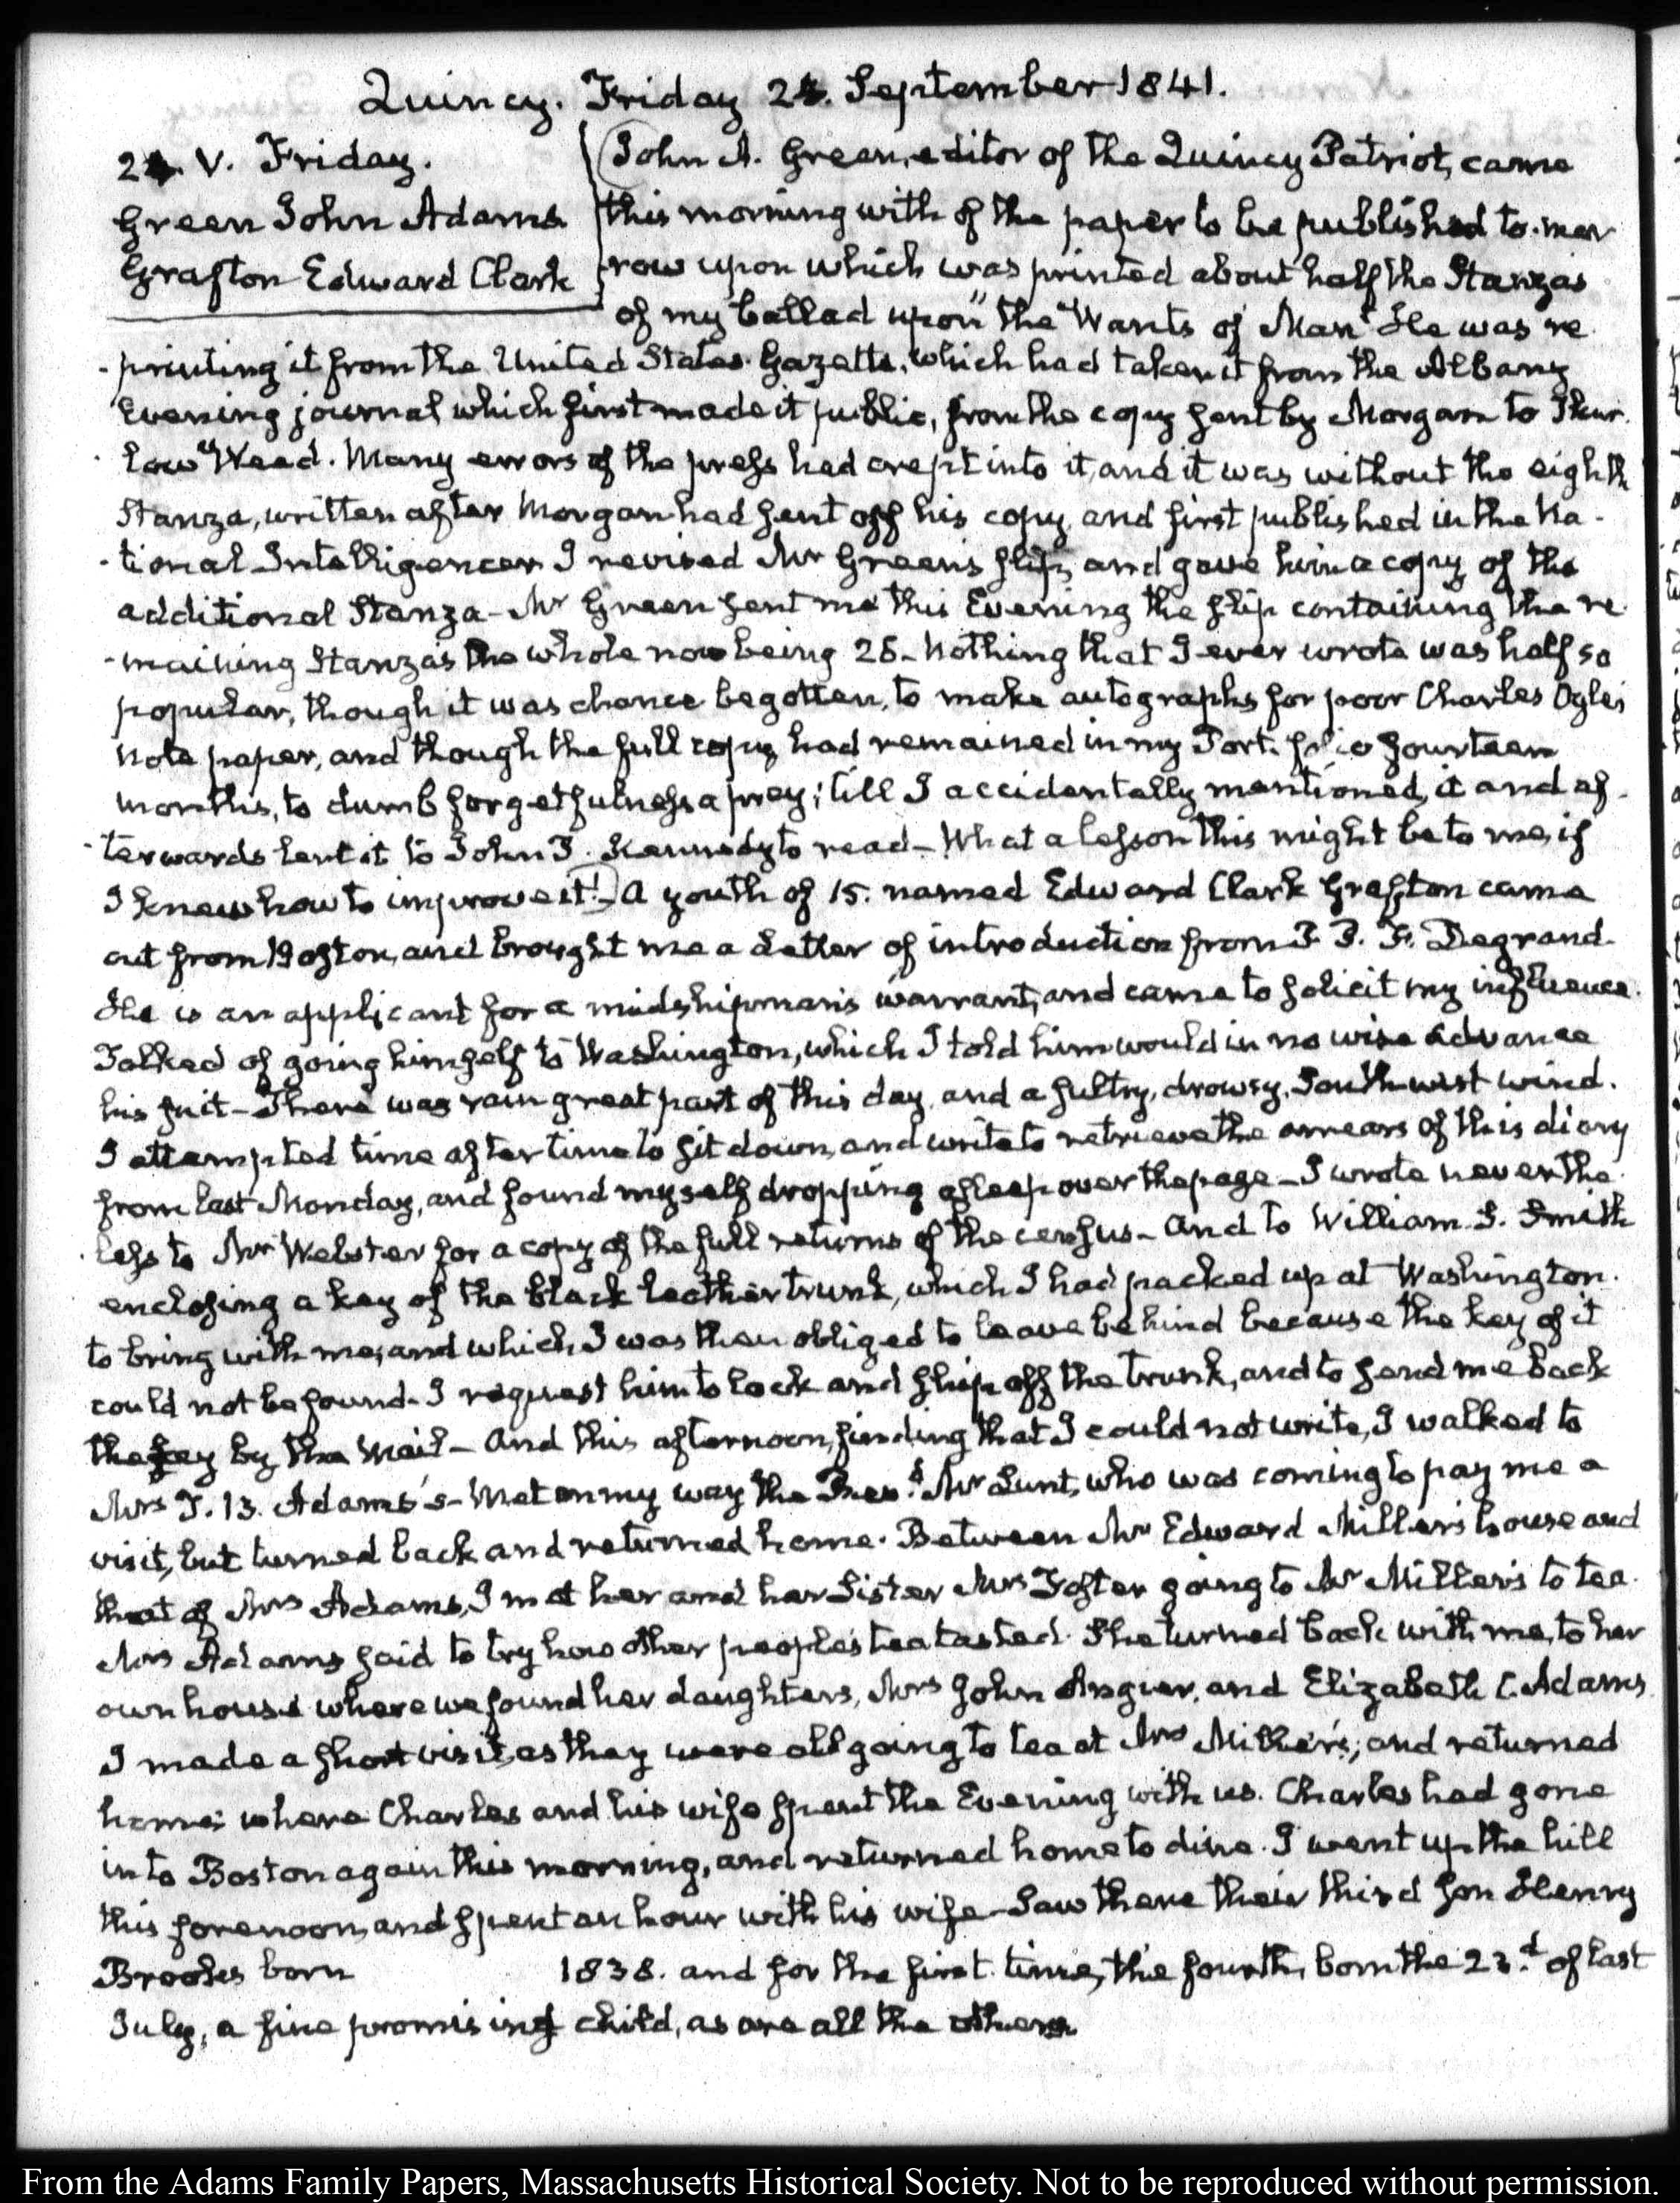 Quincy. Friday 24. September 1841.
24. V. Friday.
Green John Adams
Grafton Edward Clark
John A. Green, editor of the Quincy Patriot, came
this morning with of the paper to be published to-mor
row upon which was printed about half the Stanzas
of my ballad upon "the Wants of Man" He was re
-printing it from the United States Gazette, which had taken it from the Albany
Evening journal which first made it public, from the copy sent by Morgan to Thur-
-low Weed. Many errors of the press had crept into it, and it was without the eighth
Stanza, written after Morgan had sent off his copy, and first published in the Na-
-tional Intelligencer I revised Mr Green's slip, and gave him a copy of the
additional Stanza - Mr Green sent me this Evening the slip containing the re
-maining Stanzas the whole now being 25 - Nothing that I ever wrote was half so
popular, though it was chance begotten, to make autographs for poor Charles Ogle's
note paper, and though the full copy had remained in my Port-folio fourteen
months, to dumb forgetfulness a prey; till I accidentally mentioned it and af-
-terwards lent it to John P. Kennedy to read - What a lesson this might be to me, if
I knew how to improve it! - A youth of 15. named Edward Clark Grafton came
out from Boston, and brought me a Letter of introduction from P. P. F. Degrand.
He is an applicant for a midshipman's warrant, and came to solicit my influence.
Talked of going himself to Washington, which I told him would in no wise advance
his suit - There was rain great part of this day, and a sultry, drowsy, Southwest wind.
I attempted time after time to sit down, and write to retrieve the arrears of this diary
from last Monday, and found myself dropping asleep over the page - I wrote neverthe
-less to Mr Webster for a copy of the full returns of the census - And to William S. Smith
enclosing a key of the black leather trunk, which I had packed up at Washington.
to bring with me, and which I was then obliged to leave behind because the key of it
could not be found - I request him to lock and ship off the trunk, and to send me back
the key by the Mail - And this afternoon, finding that I could not write, I walked to
Mrs T. B. Adams's - Met on my way the Revd. Mr Lunt, who was coming to pay me a
visit, but turned back and returned home. Between Mr Edward Miller's house and
that of Mrs Adams, I met her and her Sister Mrs Foster going to Mr Miller's to tea.
Mrs Adams said to try how other people's tea tasted. She turned back with me, to her
own house where we found her daughters, Mrs John Angier, and Elizabeth C. Adams
I made a short visit, as they were all going to tea at Mrs Miller's; and returned
home; where Charles and his wife spent the Evening with us. Charles had gone
into Boston again this morning, and returned home to dine. I went up the hill
this forenoon, and spent an hour with his wife - Saw there their third son Henry
Brooks born 1838. and for the first time, the fourth, born the 23.d of last
July, a fine promising child, as are all the others
From the Adams Family Papers, Massachusetts Historical Society. Not to be reproduced without permission.